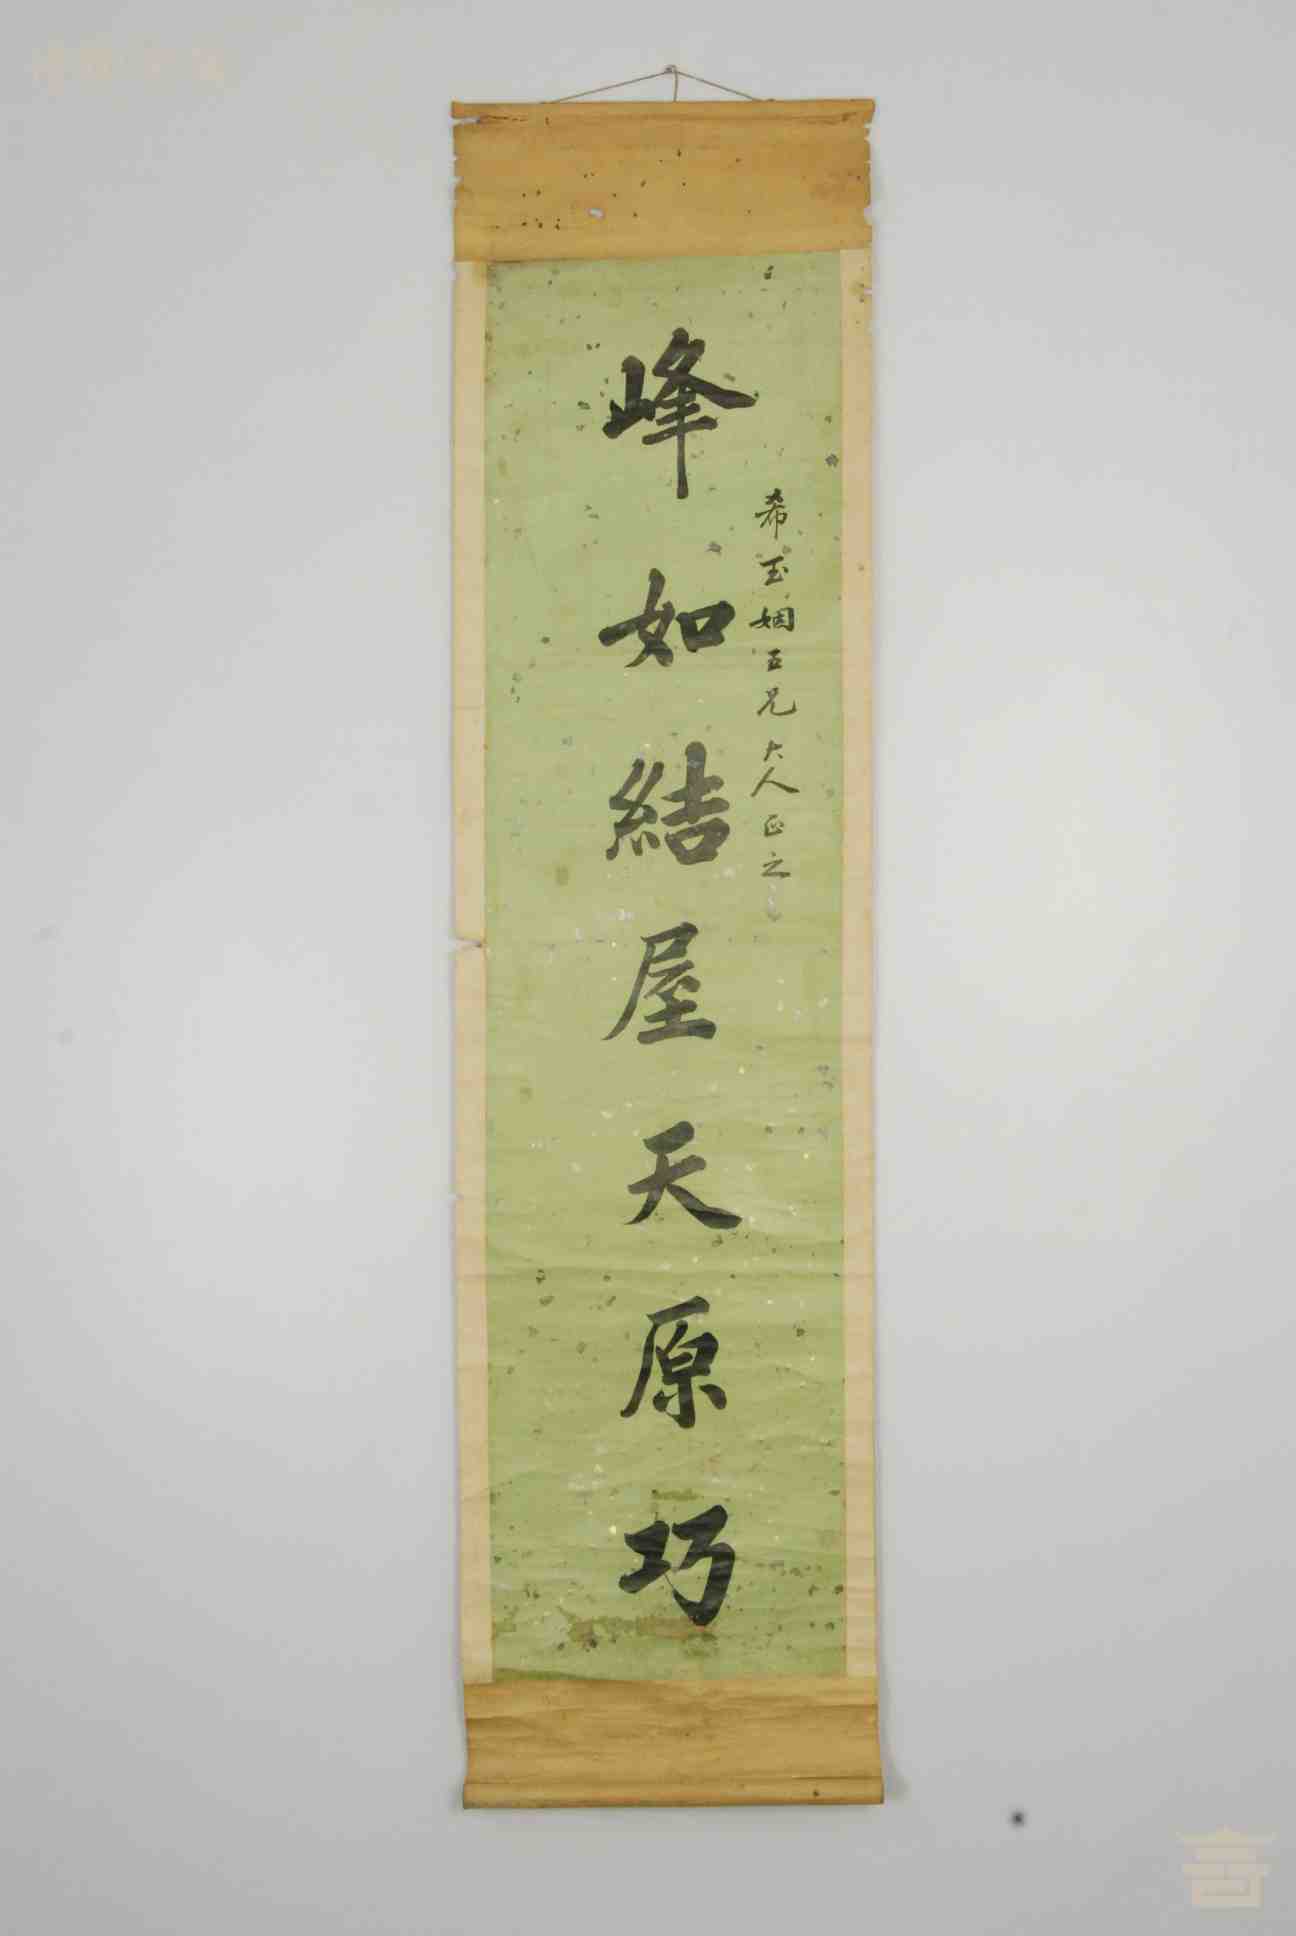 峰如結屋天原巧
希玉姻五兄大人正之